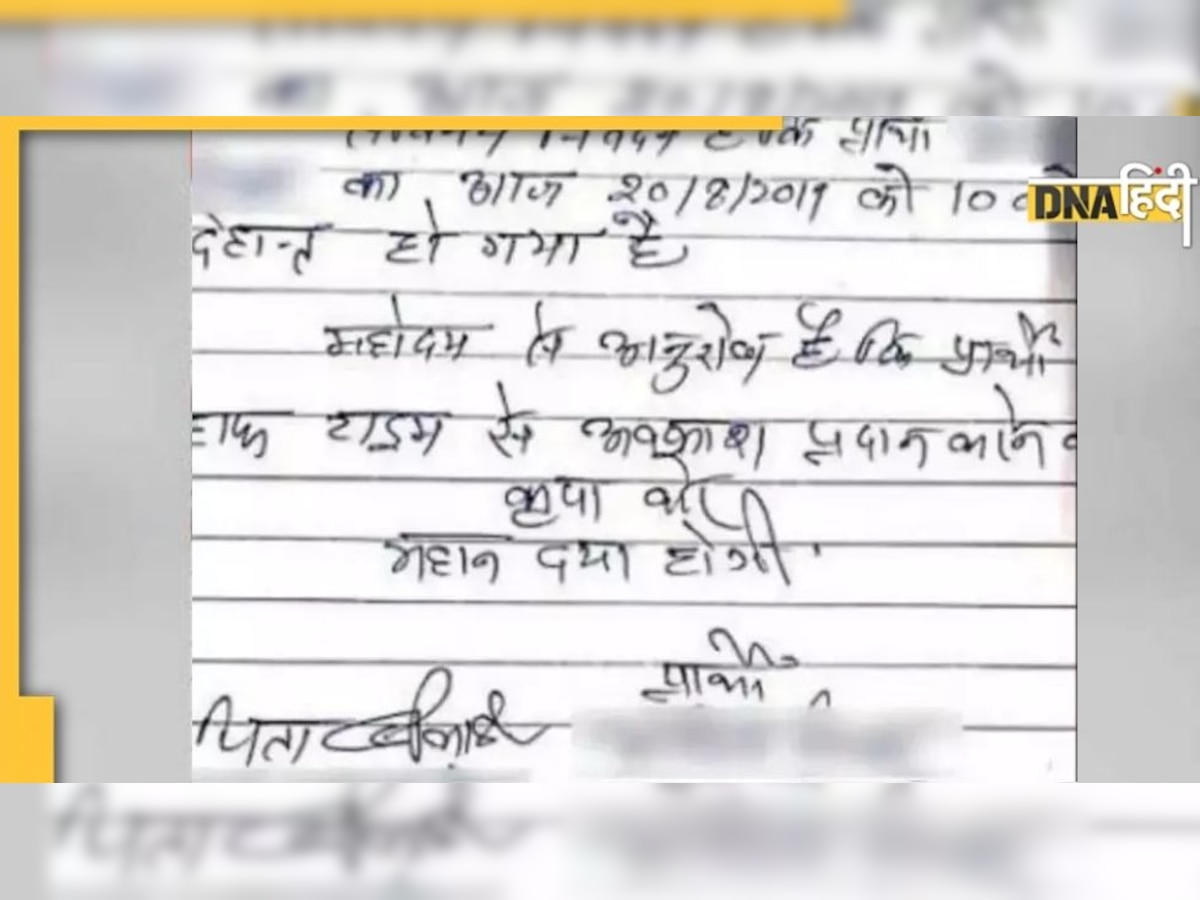 सविनय निवेदन है कि प्रार्थी
का आज 20/8/2019 को 10
DNA हिंदी
देहान्त हो गया है
महोदय से अनुरोध है कि प्रार्थी
हाफ टाइम से अवकाश प्रदान करने
कृपा करें
महान दया होगी
प्रार्थी
पिता